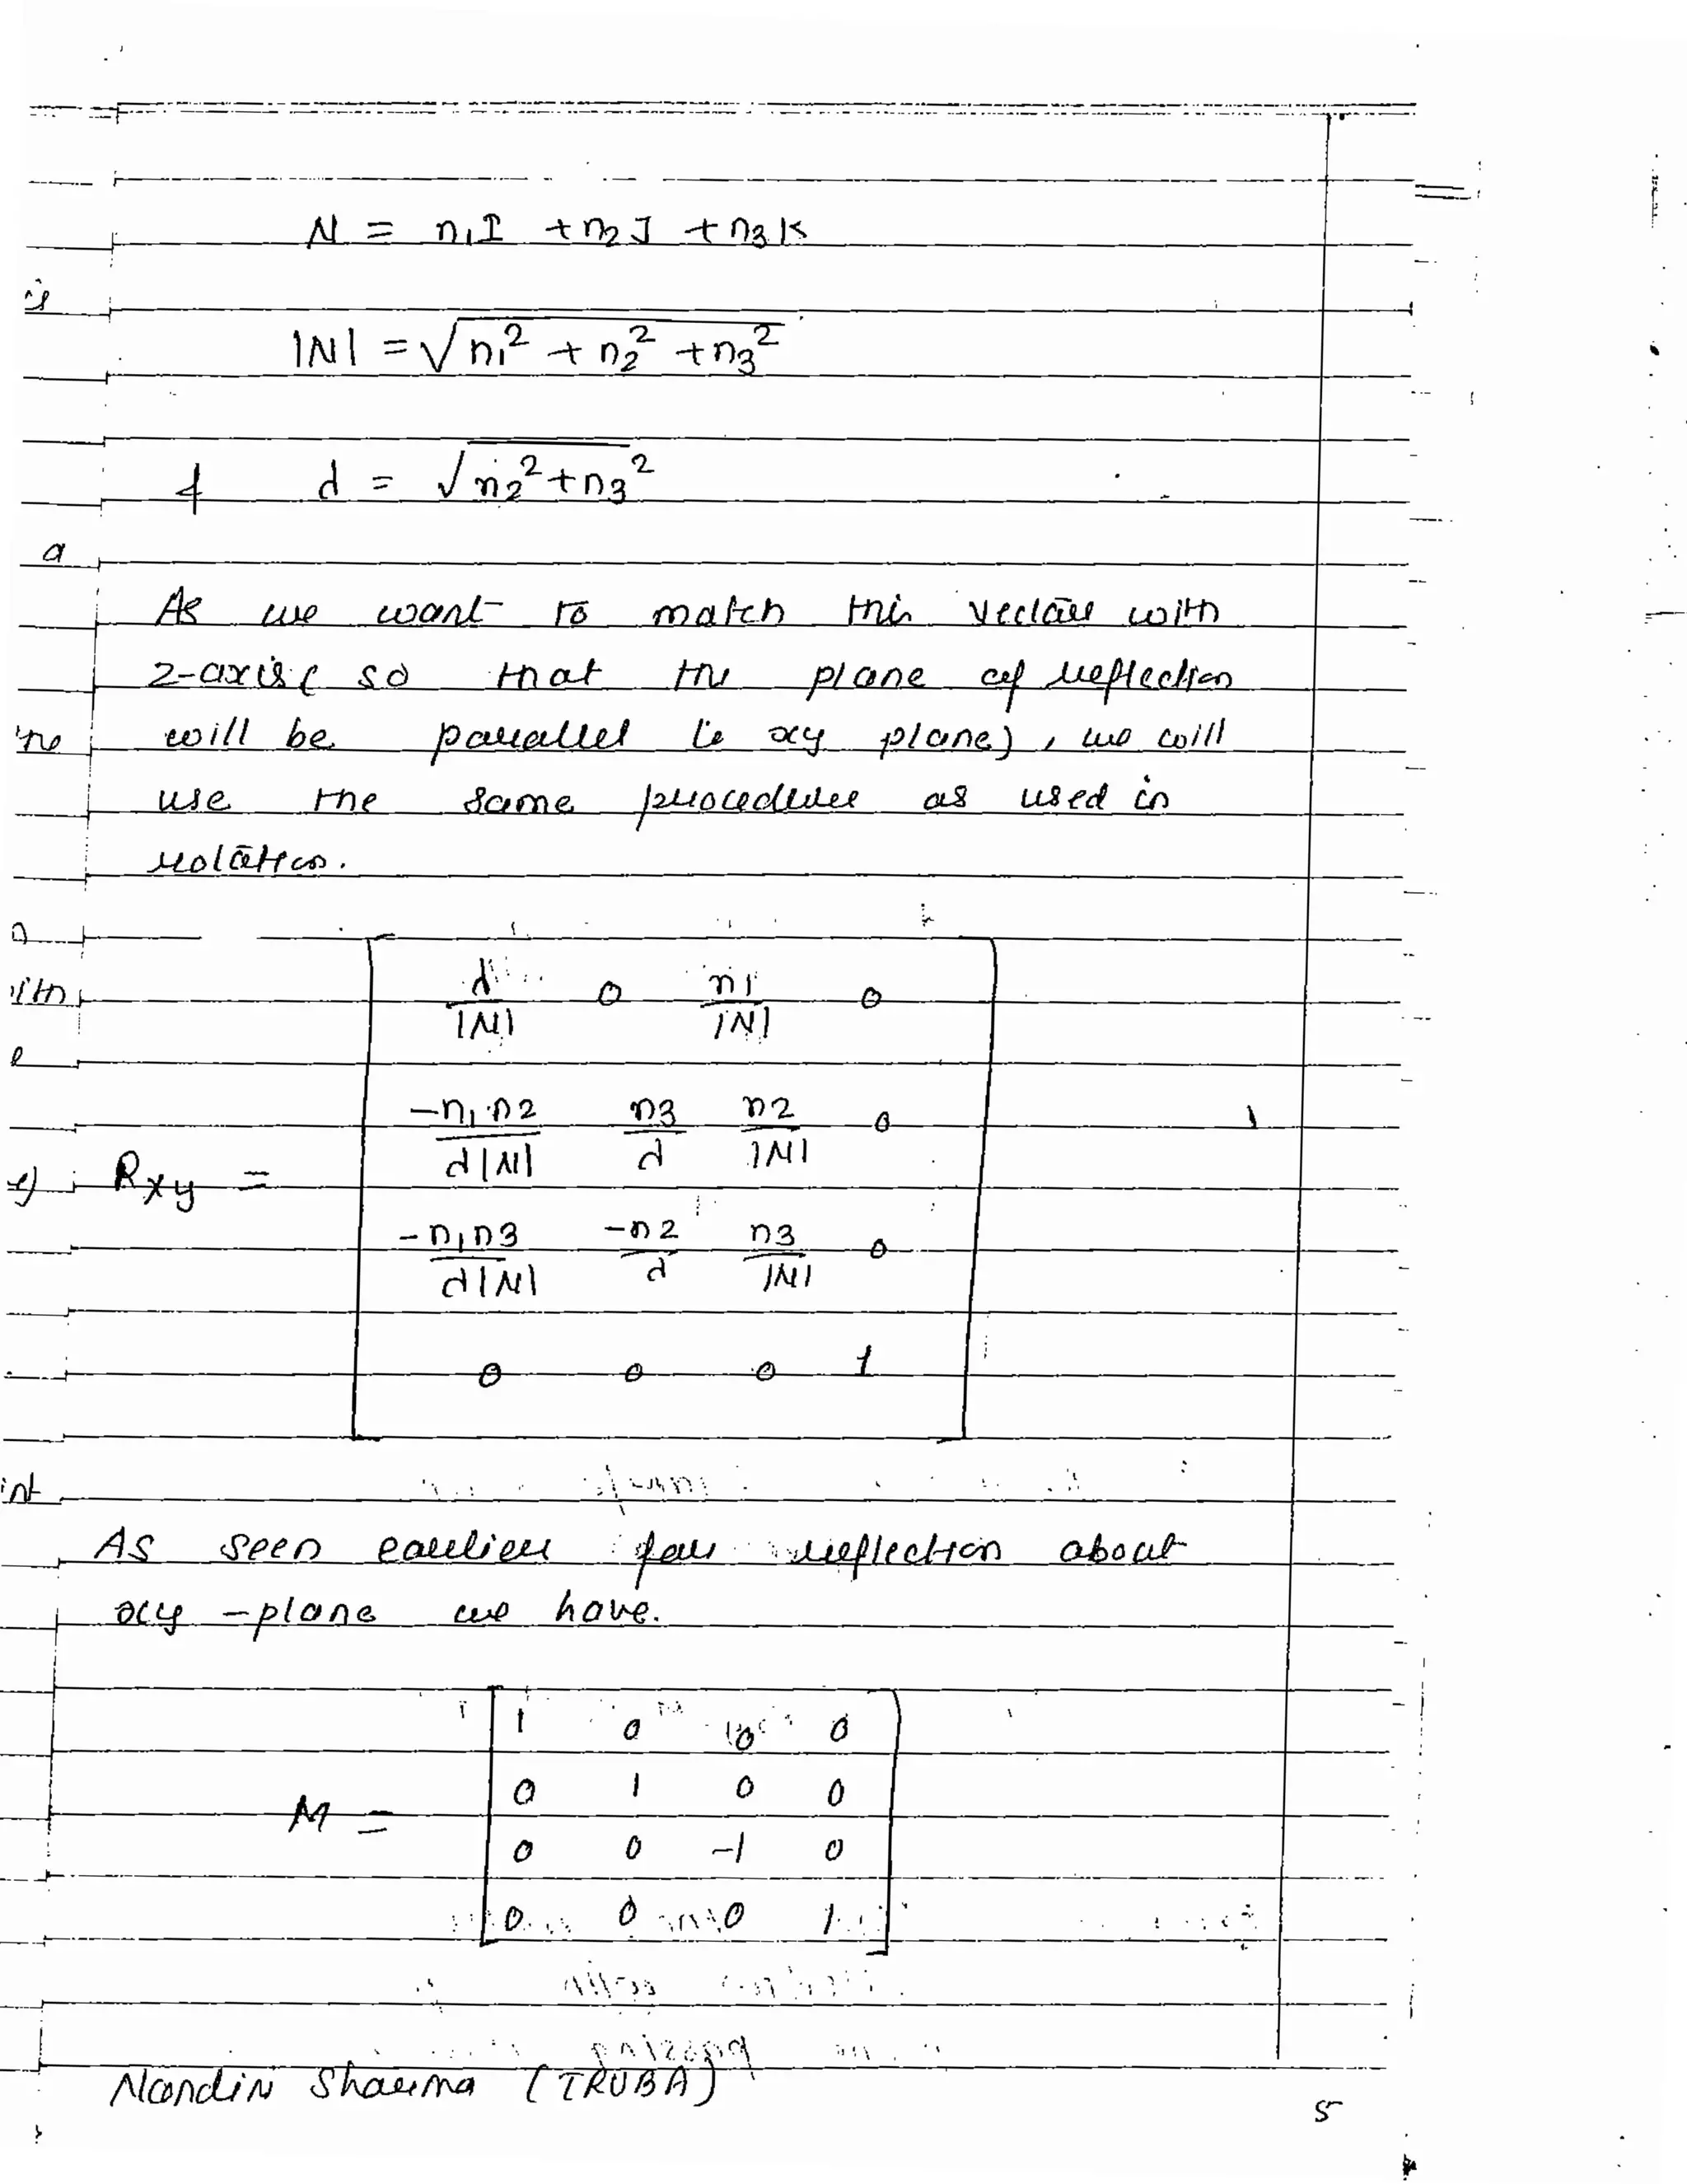 N = n1I + n2J + n3K
is
|N| = √n1² + n2² + n3²
& d = √n2² + n3²
a
As we want to match this vector with
z-axis ( so that the plane of reflection
will be parallel to xy plane) , we will
use the same procedure as used in
rotation.
d/|N| 0 n1/|N| 0
-n1.n2/d|N| n3/d n2/|N| 0
Rxy =
-n1n3/d|N| -n2/d n3/|N| 0
0 0 0 1
int
As seen earlier for reflection about
xy -plane we have.
1 0 0 0
0 1 0 0
M =
0 0 -1 0
0 0 0 1
Nandini Sharma (TRUBA)
5